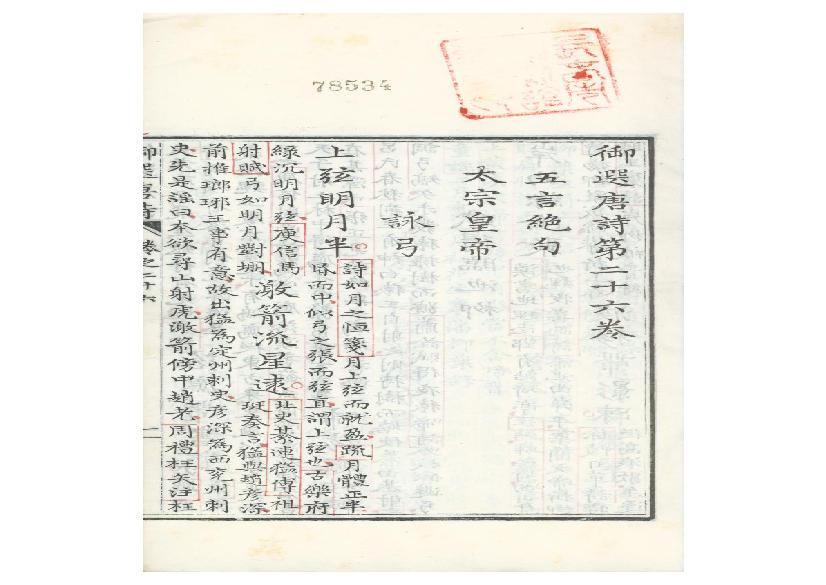 78534
御選唐詩第二十六卷
五言絕句
太宗皇帝
詠弓
上弦明月半
詩如月之恒箋月上弦而就盈疏月體正半
昏而中似弓之張而弦直謂上弦也古樂府
綠沉明月弦庾信馬
射賦弓如明月對堋
激箭流星速
北史綦連猛傳祖
珽奏言猛與趙彥深
前推瑯琊王事有意故出猛為定州刺史彥深為西兗州刺
史先是謡曰本欲尋山射虎激箭傍中趙老周禮枉矢注枉
御選唐詩 卷之二十六 一